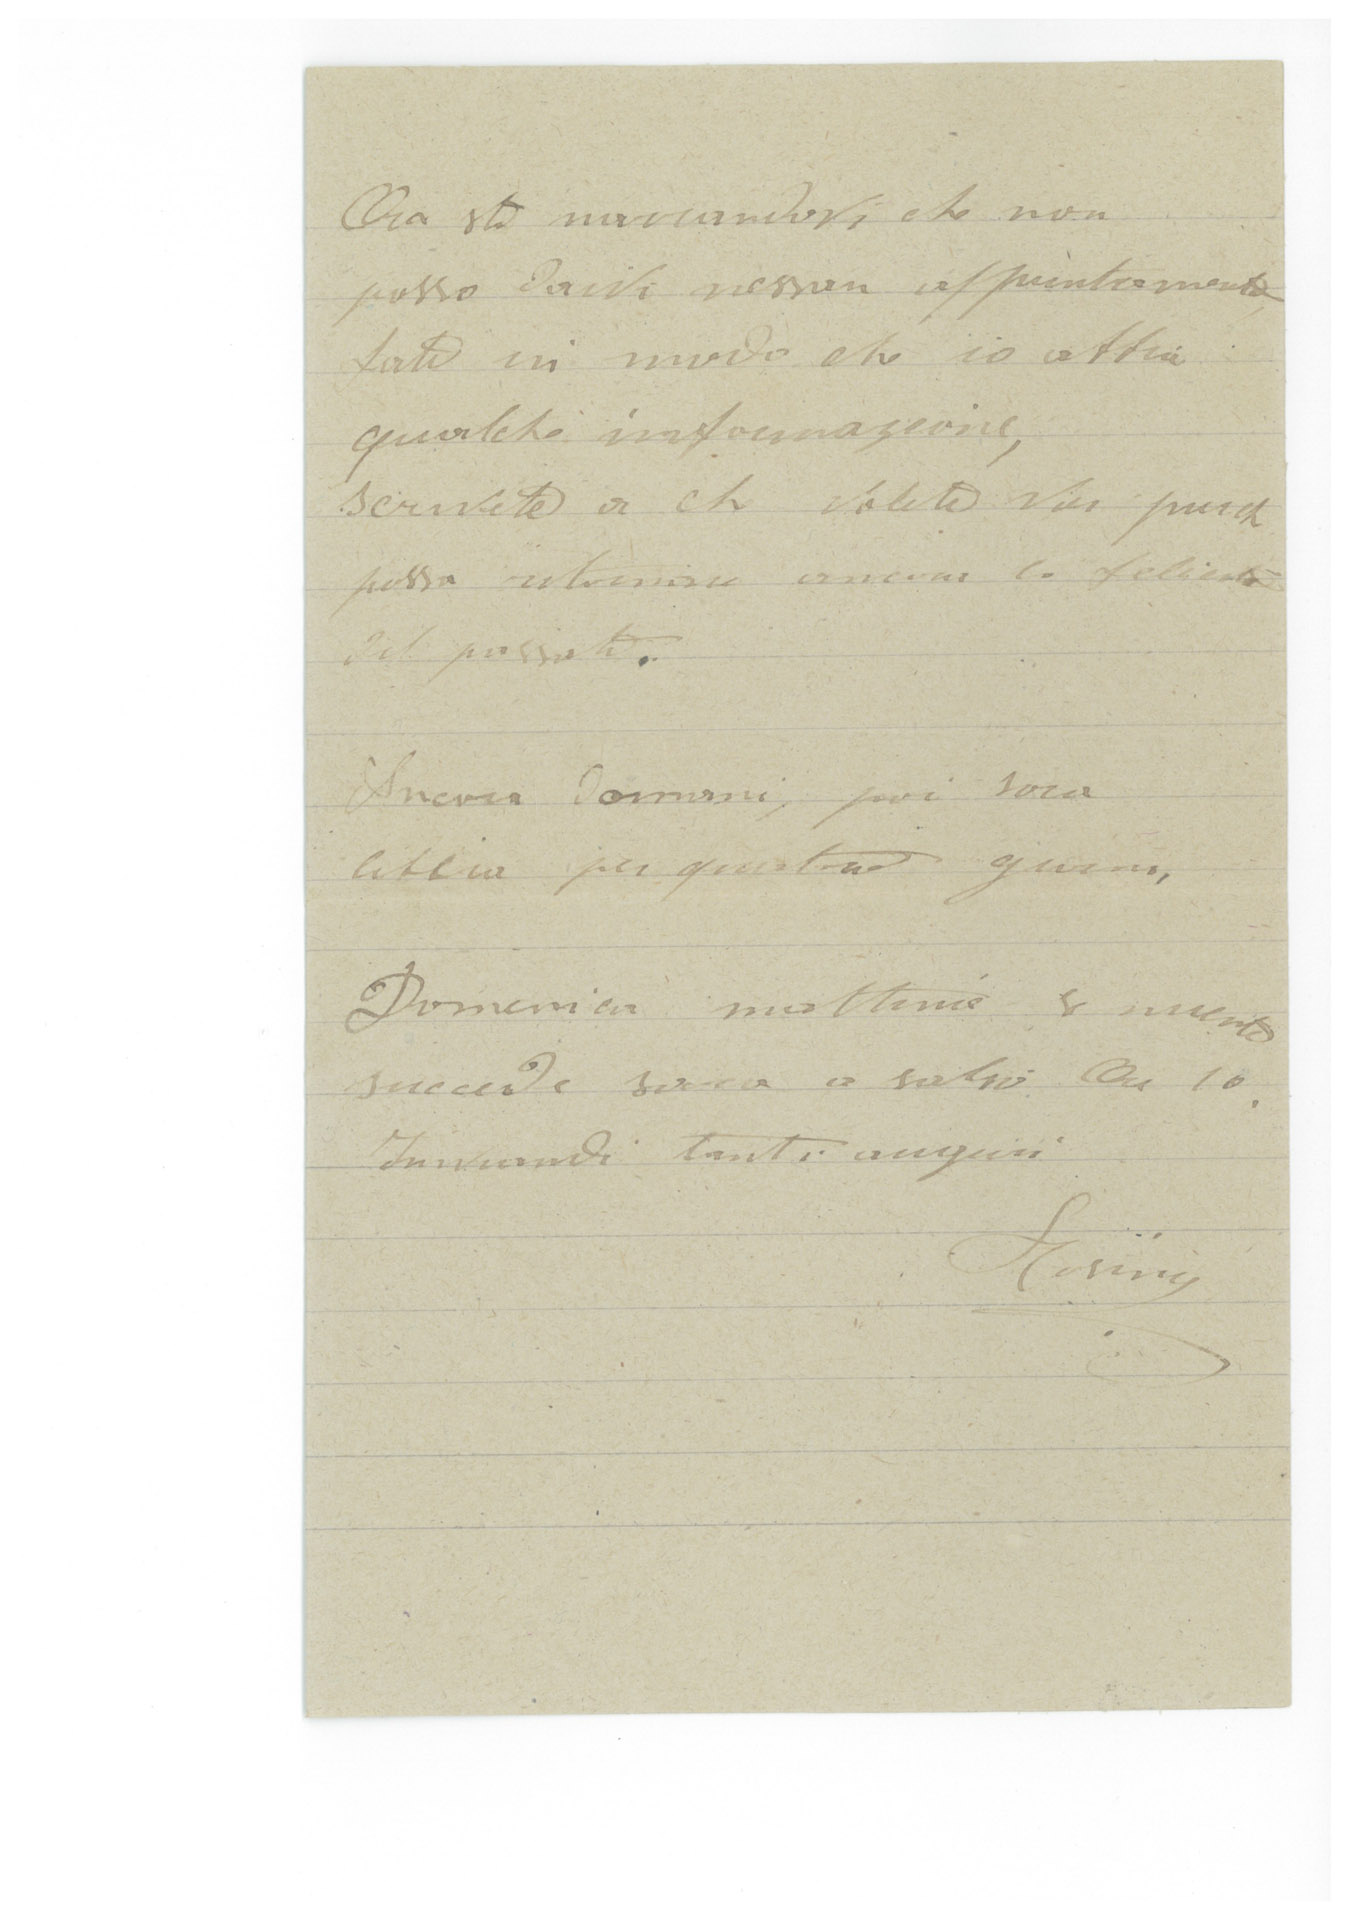 Ora sto narrandovi che non
posso darvi nessun appuntamento,
fate in modo che io abbia
qualche informazione,
scrivete a chi volete voi purch
possa ritornare ancora la felicità
del passato.
Ancora domani, poi sara
libbia per quattro giorni,
Domenica mattina s niente
succede sara a salvo Ore 10.
Inviandi tanti auguri